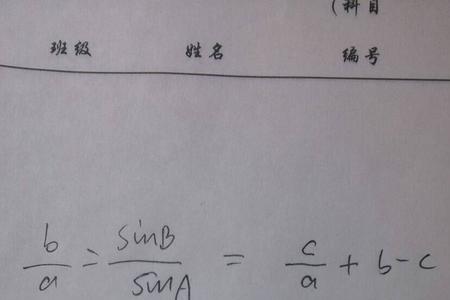 (科目
班级 姓名 编号
b/a = sinB/sinA = c/a + b-c